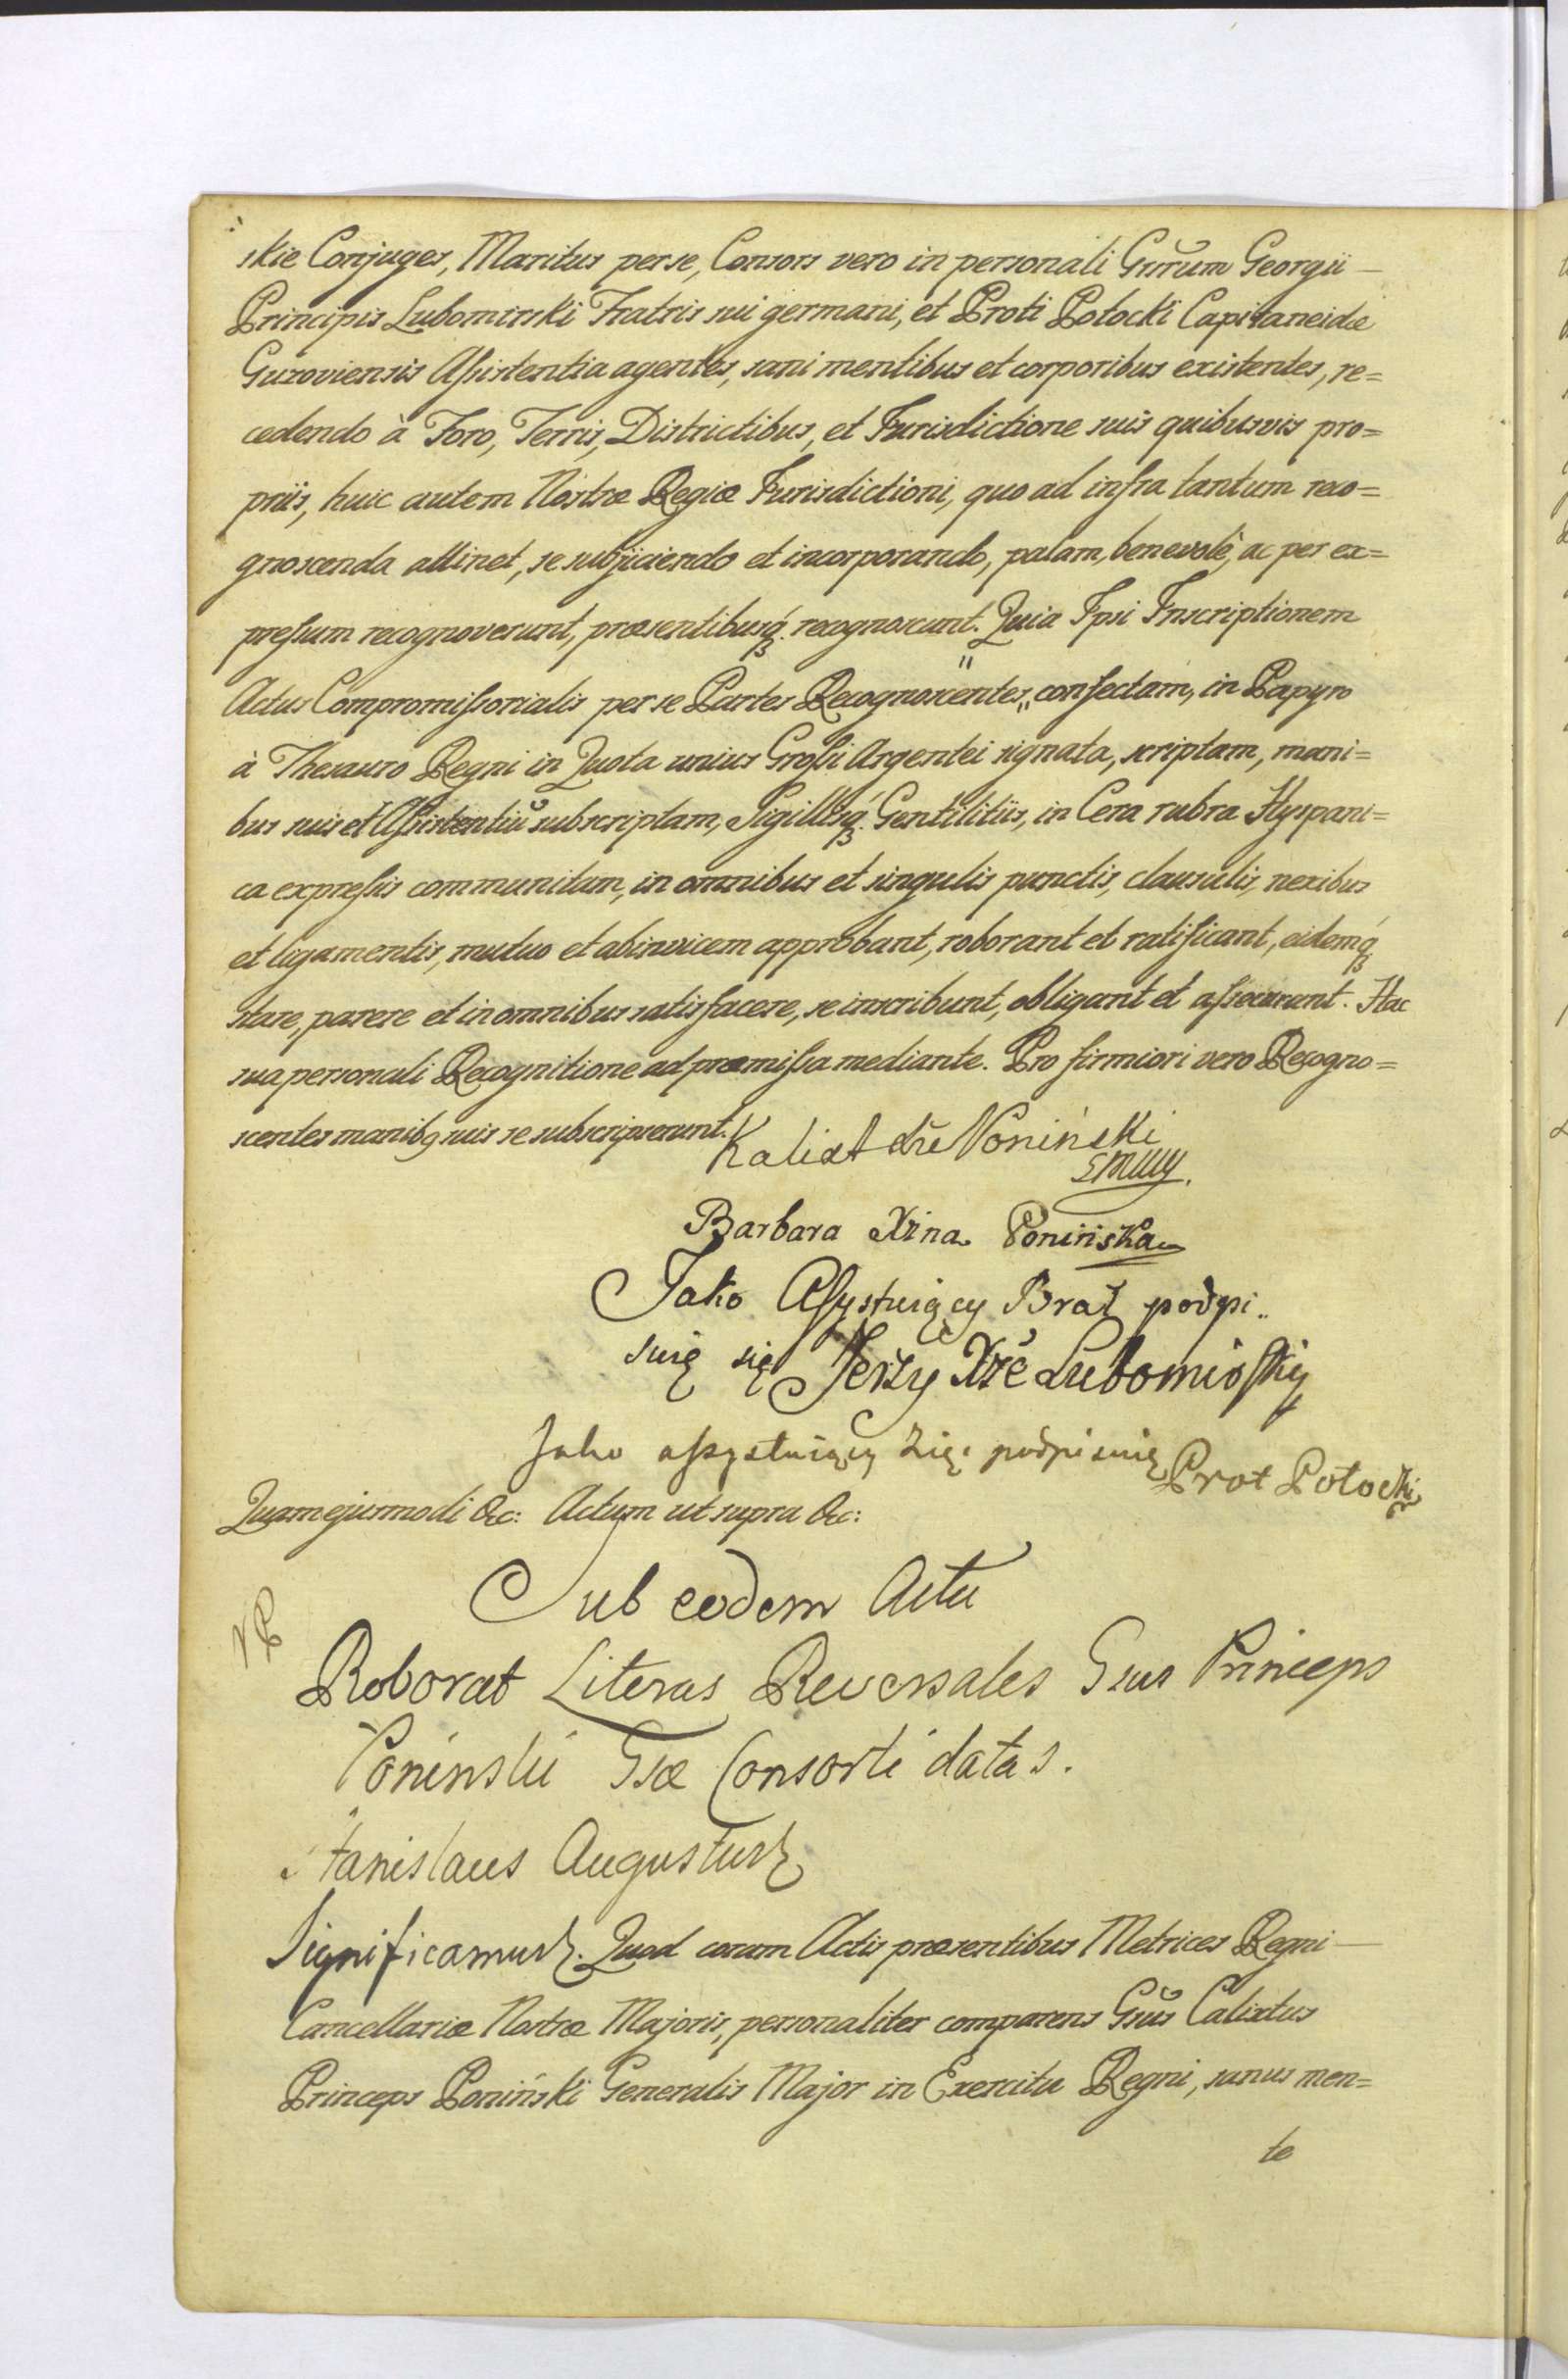 skie Conjuges, Maritus per se, Consors vero in personali Grrum Georgii —
Principis Lubomirski Fratris sui germani, et Proti Potocki Capitaneidæ
Guzoviensis Assistentia agentes, sani mentibus et corporibus existentes, re=
cedendo à Foro, Terris, Districtibus, et Jurisdictione suis quibusvis pro=
priis, huic autem Nostræ Regiæ Jurisdictioni, quo ad infra tantum reco=
gnoscenda attinet, se subjiciendo et incorporando, palam, benevolè, ac per ex=
pressum recognoverunt, præsentibusq́ꝫ recognoscunt. Quia Ipsi Inscriptionem
Actus Compromissorialis per se Partes Recognoscentes „ confectam, in Papyro
à Thesauro Regni in Quota unius Grossi Argentei signata, scriptam, mani=
bus suis et Assistentiũ subscriptam, Sigillisq́ꝫ Gentilitiis, in Cera rubra Hyspani=
ca expressis communitam, in omnibus et singulis punctis, clausulis, nexibus
et ligamentis, mutuo et abinvicem approbant, roborant et ratificant, eidemq́ꝫ
stare, parere et in omnibus satisfacere, se inscribunt, obligant et assecurant. Hac
sua personali Recognitione ad præmissa mediante. Pro firmiori vero Recogno=
scentes manibꝯ suis se subscripserunt.
Kalixt Xże Poniński
Barbara Xżna Ponińska
Jako Assystuiący Brat podpi„
suię się Jerży Xżę Lubomirski
Jako assystuiący się podpisuię Prot Potocki
Quamejusmodi &c: Actum ut supra &c:
Sub eodem Actu
Roborat Literas Reversales Gsus Princeps
Poninski Gsæ Consorti datas.
Stanislaus Augustus
Significamus. Quod coram Actis præsentibus Metrices Regni —
Cancellariæ Nostræ Majoris, personaliter comparens Gsũs Calixtus
Princeps Poniński Generalis Major in Exercitu Regni, sanus men=
te